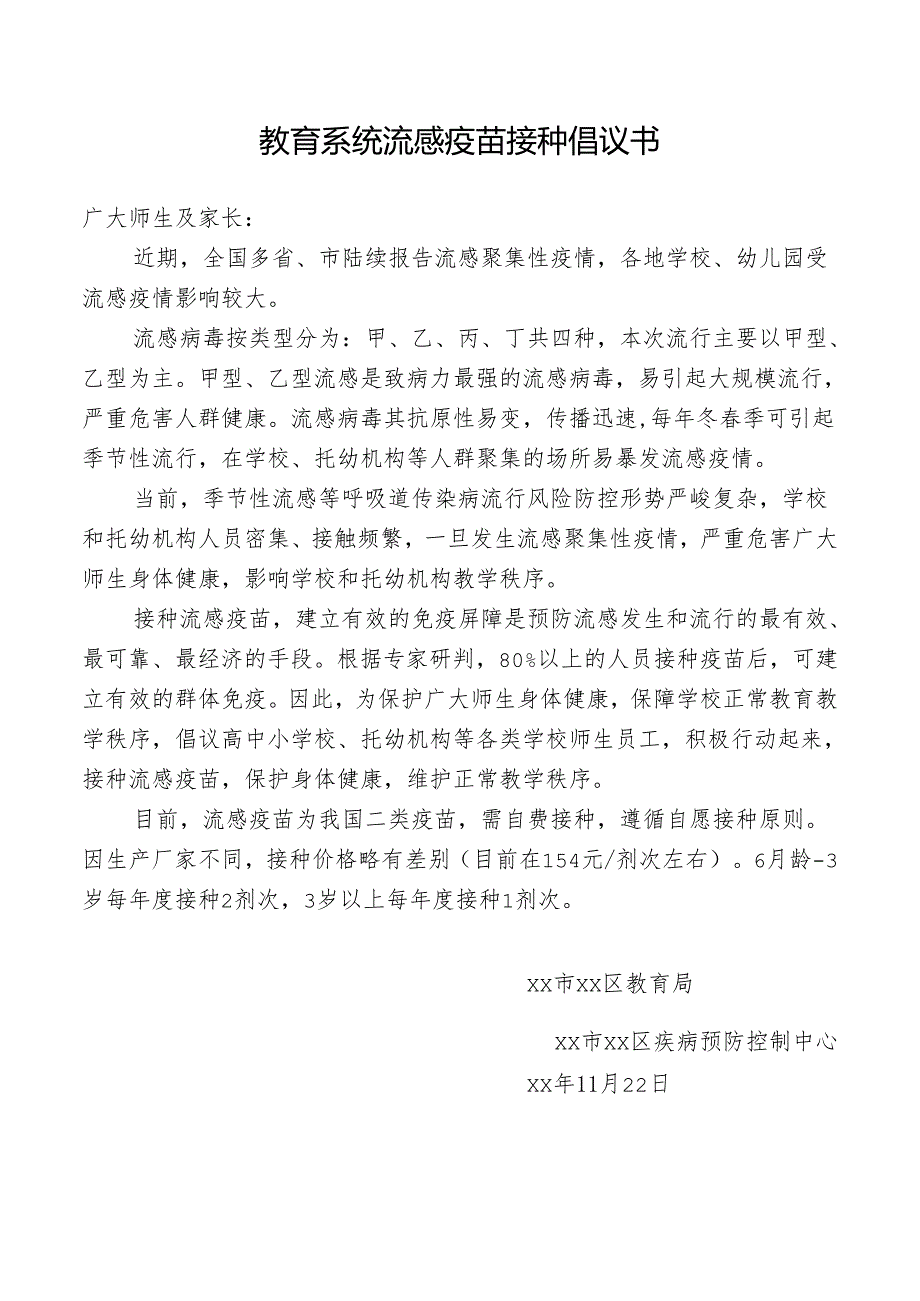 教育系统流感疫苗接种倡议书
广大师生及家长：
近期，全国多省、市陆续报告流感聚集性疫情，各地学校、幼儿园受
流感疫情影响较大。
流感病毒按类型分为：甲、乙、丙、丁共四种，本次流行主要以甲型、
乙型为主。甲型、乙型流感是致病力最强的流感病毒，易引起大规模流行，
严重危害人群健康。流感病毒其抗原性易变，传播迅速,每年冬春季可引起
季节性流行，在学校、托幼机构等人群聚集的场所易暴发流感疫情。
当前，季节性流感等呼吸道传染病流行风险防控形势严峻复杂，学校
和托幼机构人员密集、接触频繁，一旦发生流感聚集性疫情，严重危害广大
师生身体健康，影响学校和托幼机构教学秩序。
接种流感疫苗，建立有效的免疫屏障是预防流感发生和流行的最有效、
最可靠、最经济的手段。根据专家研判，80%以上的人员接种疫苗后，可建
立有效的群体免疫。因此，为保护广大师生身体健康，保障学校正常教育教
学秩序，倡议高中小学校、托幼机构等各类学校师生员工，积极行动起来，
接种流感疫苗，保护身体健康，维护正常教学秩序。
目前，流感疫苗为我国二类疫苗，需自费接种，遵循自愿接种原则。
因生产厂家不同，接种价格略有差别（目前在154元/剂次左右）。6月龄-3
岁每年度接种2剂次，3岁以上每年度接种1剂次。
xx市xx区教育局
xx市xx区疾病预防控制中心
xx年11月22日